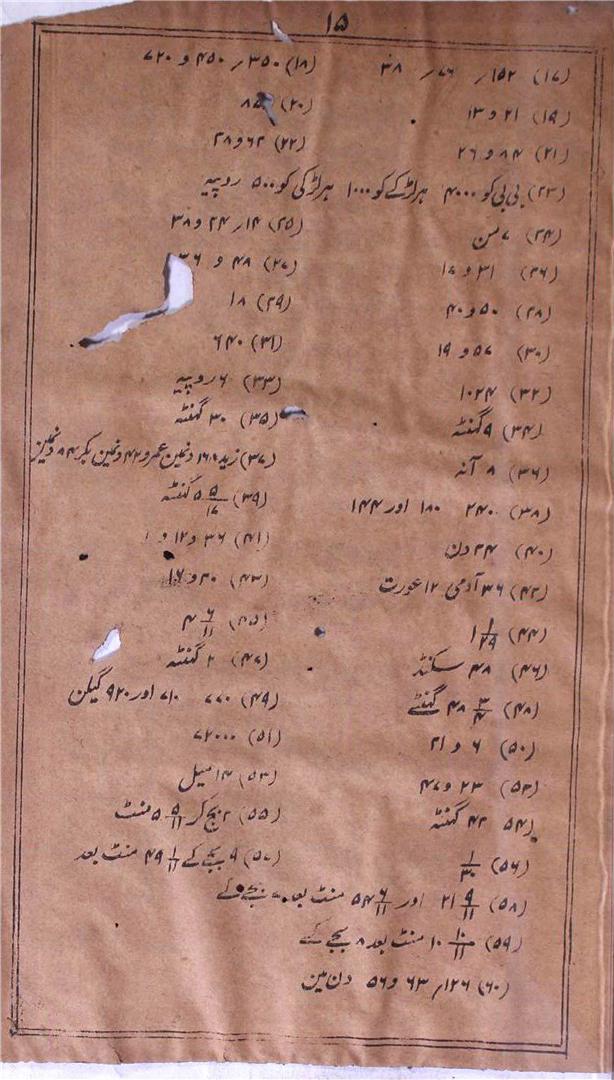 ۱۵
(۱۷) ۱۵۲، ۷۶، ۳۸ (۱۸) ۳۵۰، ۴۵۰ و ۷۲۰
(۱۹) ۲۱ و ۱۳ (۲۰)
(۲۱) ۸۴ و ۲۶ (۲۲) ۶۲ و ۳۸
(۲۳) بی بی کو ۴۰۰۰ ہر لڑکے کو ۱۰۰۰ ہر لڑکی کو ۵۰۰ روپیہ
(۲۴) ۷ من (۲۵) ۱۴، ۲۴ و ۳۸
(۲۶) ۳۱ و ۱۷ (۲۷) ۴۸ و ۳۶
(۲۸) ۵۰ و ۴۰ (۲۹) ۱۸
(۳۰) ۵۷ و ۱۹ (۳۱) ۶۴۰
(۳۲) ۱۰۲۴ (۳۳) ۶ روپیہ
(۳۴) ۹ گھنٹہ (۳۵) ۳۰ گھنٹہ
(۳۶) ۸ آنہ (۳۷) زید ۱۶۸ دنمین عمرو ۴۲ دنمین بکر ۸۴ دنمین
(۳۸) ۲۴۰ ۱۸۰ اور ۱۴۴ (۳۹) ۵ ۵/۱۷ گھنٹہ
(۴۰) ۲۴ دن (۴۱) ۳۶ و ۱۲ و
(۴۲) ۳۶ آدمی ۱۲ عورت (۴۳) ۲۰ و ۱۶
(۴۴) ۱ ۱/۲۹ (۴۵) ۴ ۶/۱۱
(۴۶) ۴۸ سکنڈ (۴۷) ۲ گھنٹہ
(۴۸) ۴۸ ۳/۴ گھنٹے (۴۹) ۷۷۰ ۷۱۰ اور ۹۲۰ گیلن
(۵۰) ۶ و ۲۱ (۵۱) ۷۲۰۰۰
(۵۲) ۲۳ و ۴۷ (۵۳) ۱۴ میل
(۵۴) ۴۲ گھنٹہ (۵۵) ۲ بجکر ۵ ۵/۱۱ منٹ
(۵۶) ۱/۳۰ (۵۷) ۹ بجے کے ۴۹ ۱/۱۱ منٹ بعد
(۵۸) ۲۱ ۹/۱۱ اور ۵۴ ۶/۱۱ منٹ بعد ۷ بجے کے
(۵۹) ۱۰ ۱۰/۱۱ منٹ بعد ۸ بجے کے
(۶۰) ۱۲۶، ۶۳ و ۵۶ دن مین